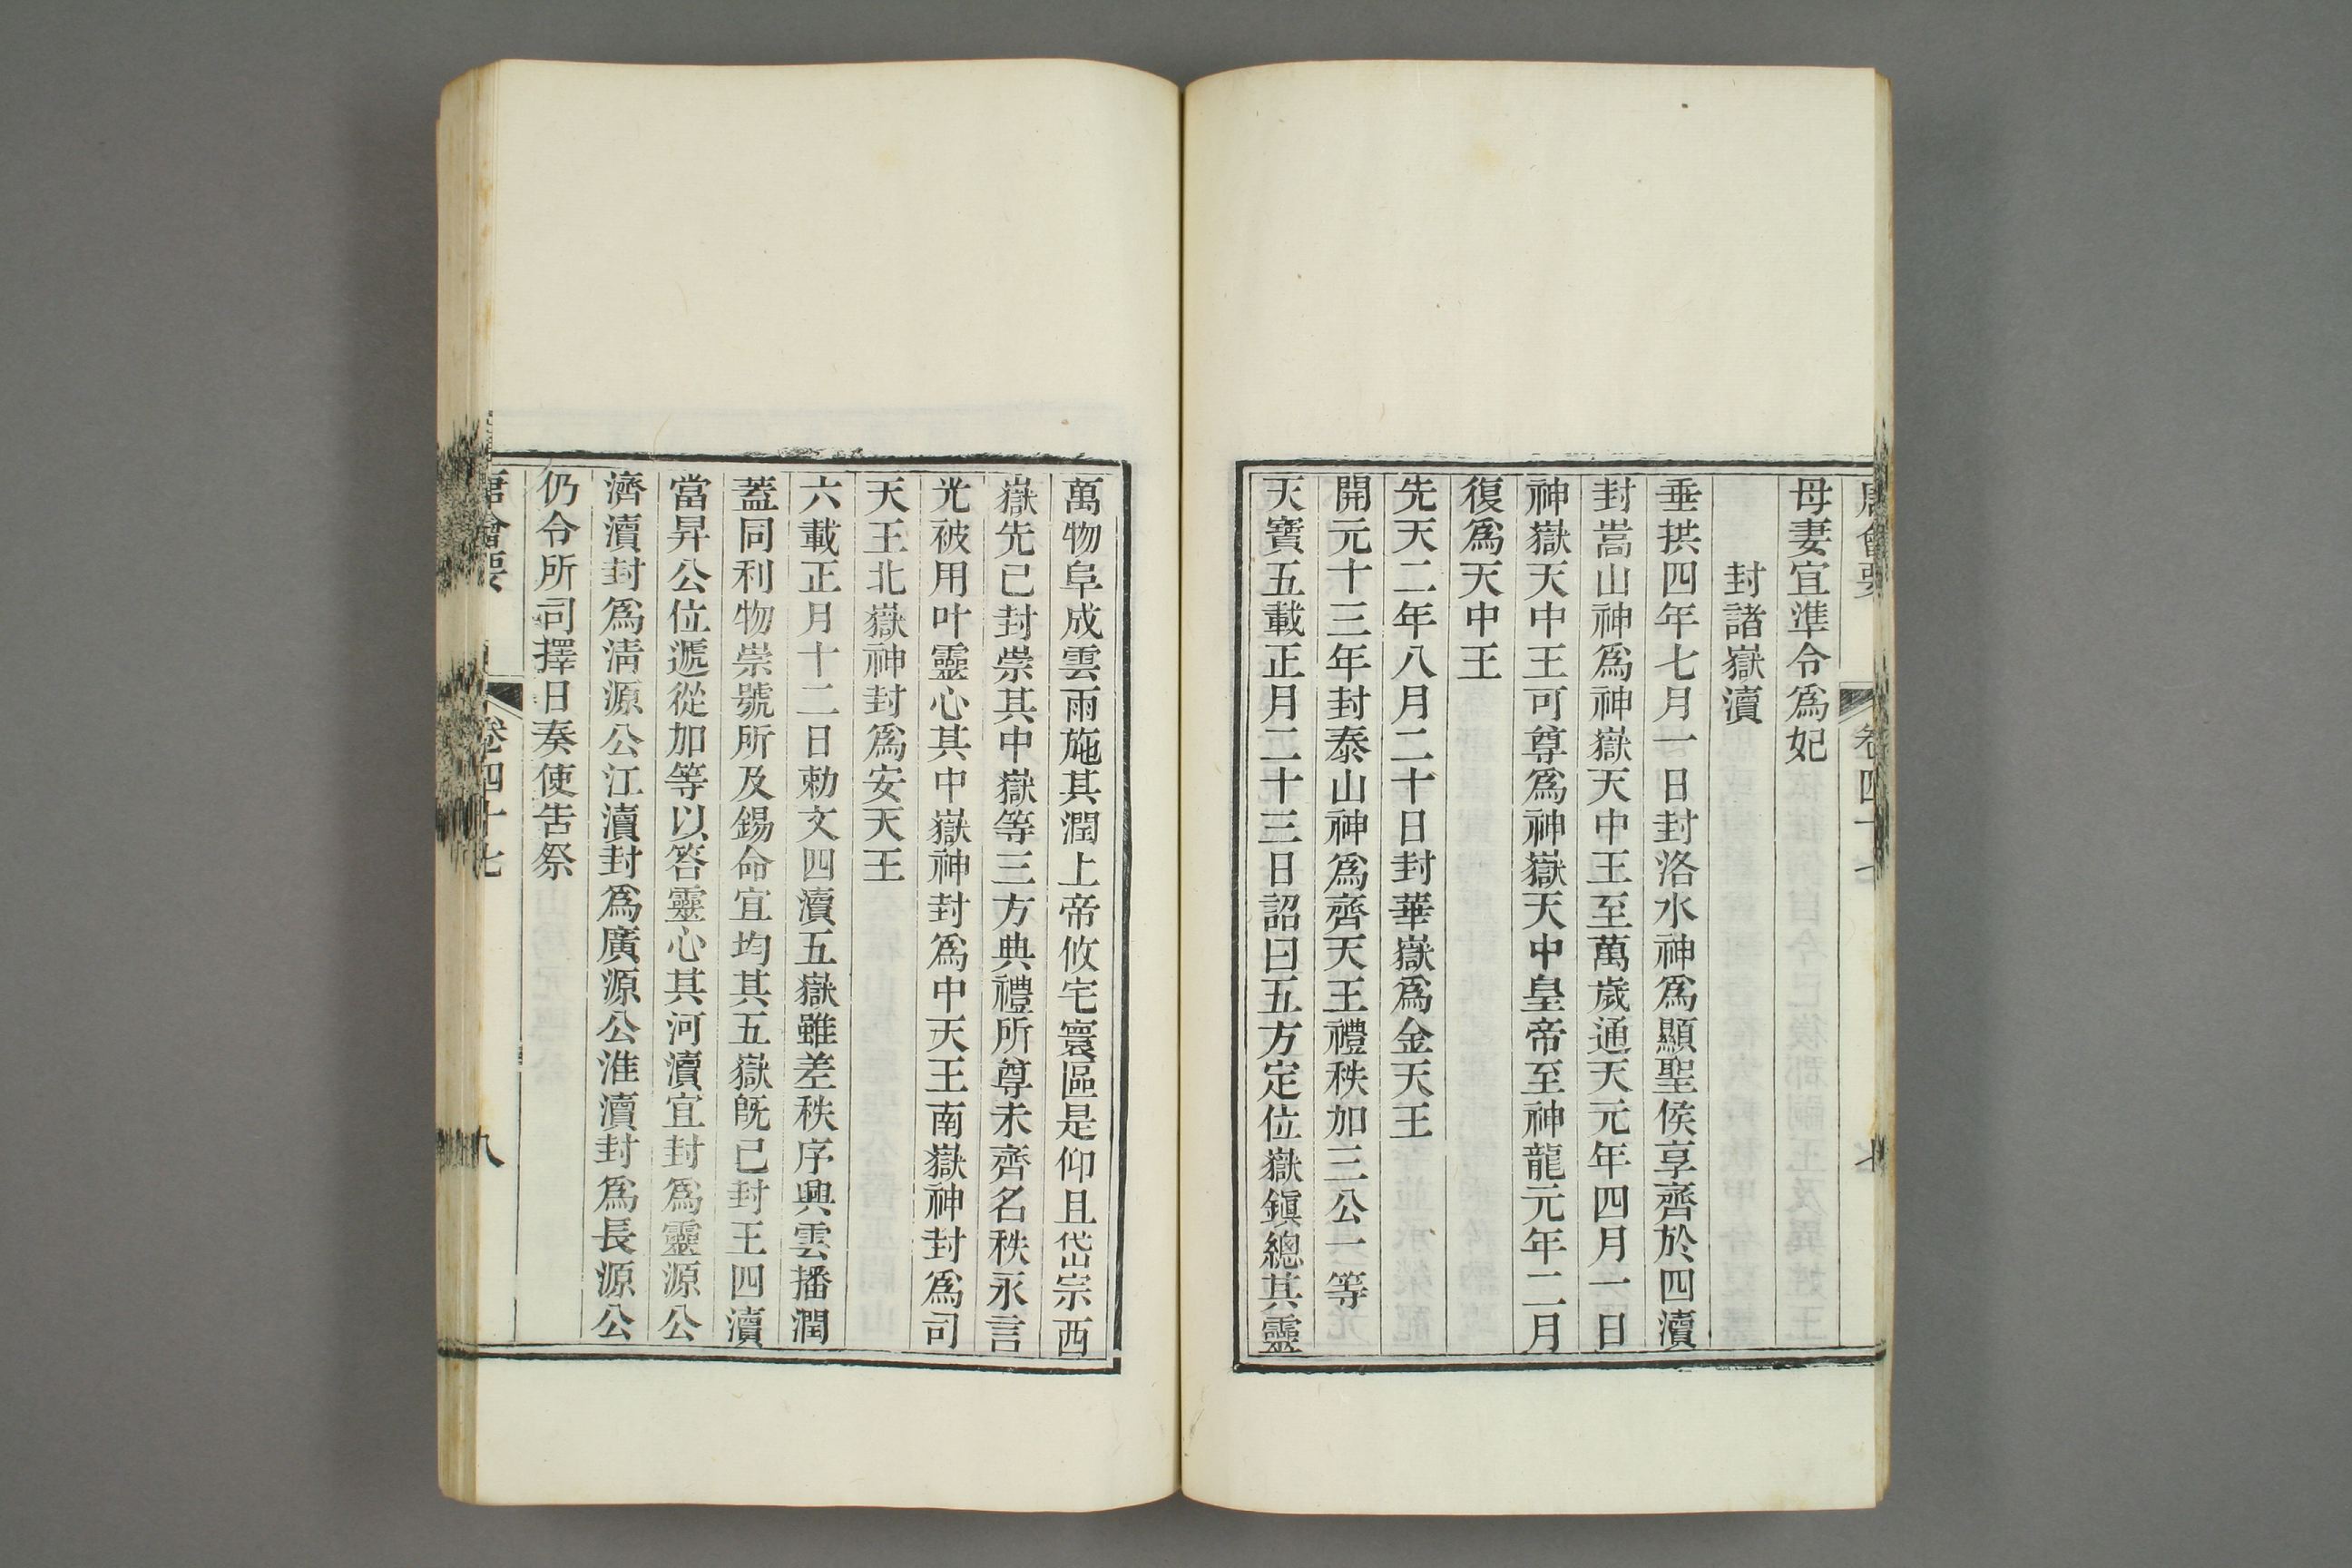 唐會要 卷四十七 七
母妻宜準令爲妃
封諸嶽瀆
垂拱四年七月一日封洛水神爲顯聖侯享齊於四瀆
封嵩山神爲神嶽天中王至萬歲通天元年四月一日
神嶽天中王可尊爲神嶽天中皇帝至神龍元年二月
復爲天中王
先天二年八月二十日封華嶽爲金天王
開元十三年封泰山神爲齊天王禮秩加三公一等
天寶五載正月二十三日詔曰五方定位嶽鎭總其靈
萬物阜成雲雨施其潤上帝攸宅寰區是仰且岱宗西
嶽先已封崇其中嶽等三方典禮所尊未齊名秩永言
光被用叶靈心其中嶽神封爲中天王南嶽神封爲司
天王北嶽神封爲安天王
六載正月十二日勅文四瀆五嶽雖差秩序興雲播潤
蓋同利物崇號所及錫命宜均其五嶽旣已封王四瀆
當昇公位遞從加等以答靈心其河瀆宜封爲靈源公
濟瀆封爲淸源公江瀆封爲廣源公淮瀆封爲長源公
仍令所司擇日奏使告祭
唐會要 卷四十七 八